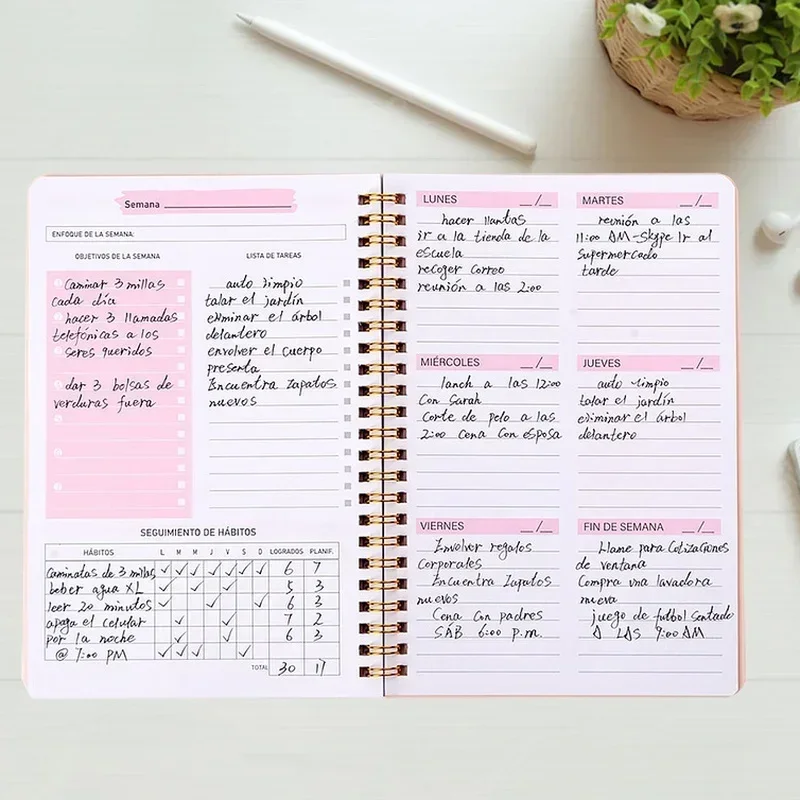 Semana
ENFOQUE DE LA SEMANA:
OBJETIVOS DE LA SEMANA
Caminar 3 millas
cada día
hacer 3 llamadas
telefónicas a los
seres queridos
dar 3 bolsas de
verduras fuera
LISTA DE TAREAS
auto limpio
talar el jardín
eliminar el árbol
delantero
envolver el cuerpo
presenta
Encuentra zapatos
nuevos
SEGUIMIENTO DE HÁBITOS
HÁBITOS L M M J V S D LOGRADOS PLANIF.
Caminatas de 3 millas ✓ ✓ ✓ ✓ ✓ ✓ ✓ 6 7
beber agua XL ✓ ✓ ✓ 5 3
leer 20 minutos ✓ ✓ ✓ 6 3
apaga el celular ✓ ✓ 7 2
por la noche ✓ ✓ 6 3
@ 7:00 PM ✓ ✓ ✓ ✓
TOTAL 30 17
LUNES __/__
hacer llantas
ir a la tienda de la
escuela
recoger correo
reunión a las 2:00
MARTES __/__
reunión a las
11:00 AM-Skype Ir al
supermercado
tarde
MIÉRCOLES __/__
lanch a las 12:00
Con Sarah
Corte de pelo a las
2:00 Cena Con esposa
JUEVES __/__
auto limpio
talar el jardín
eliminar el árbol
delantero
VIERNES __/__
Envolver regalos
Corporales
Encuentra zapatos
nuevos
Cena Con padres
SÁB 6:00 p.m.
FIN DE SEMANA __/__
Llame para Cotizaciones
de ventana
Compra una lavadora
nueva
juego de futbol Sentado
A LAS 9:00 AM